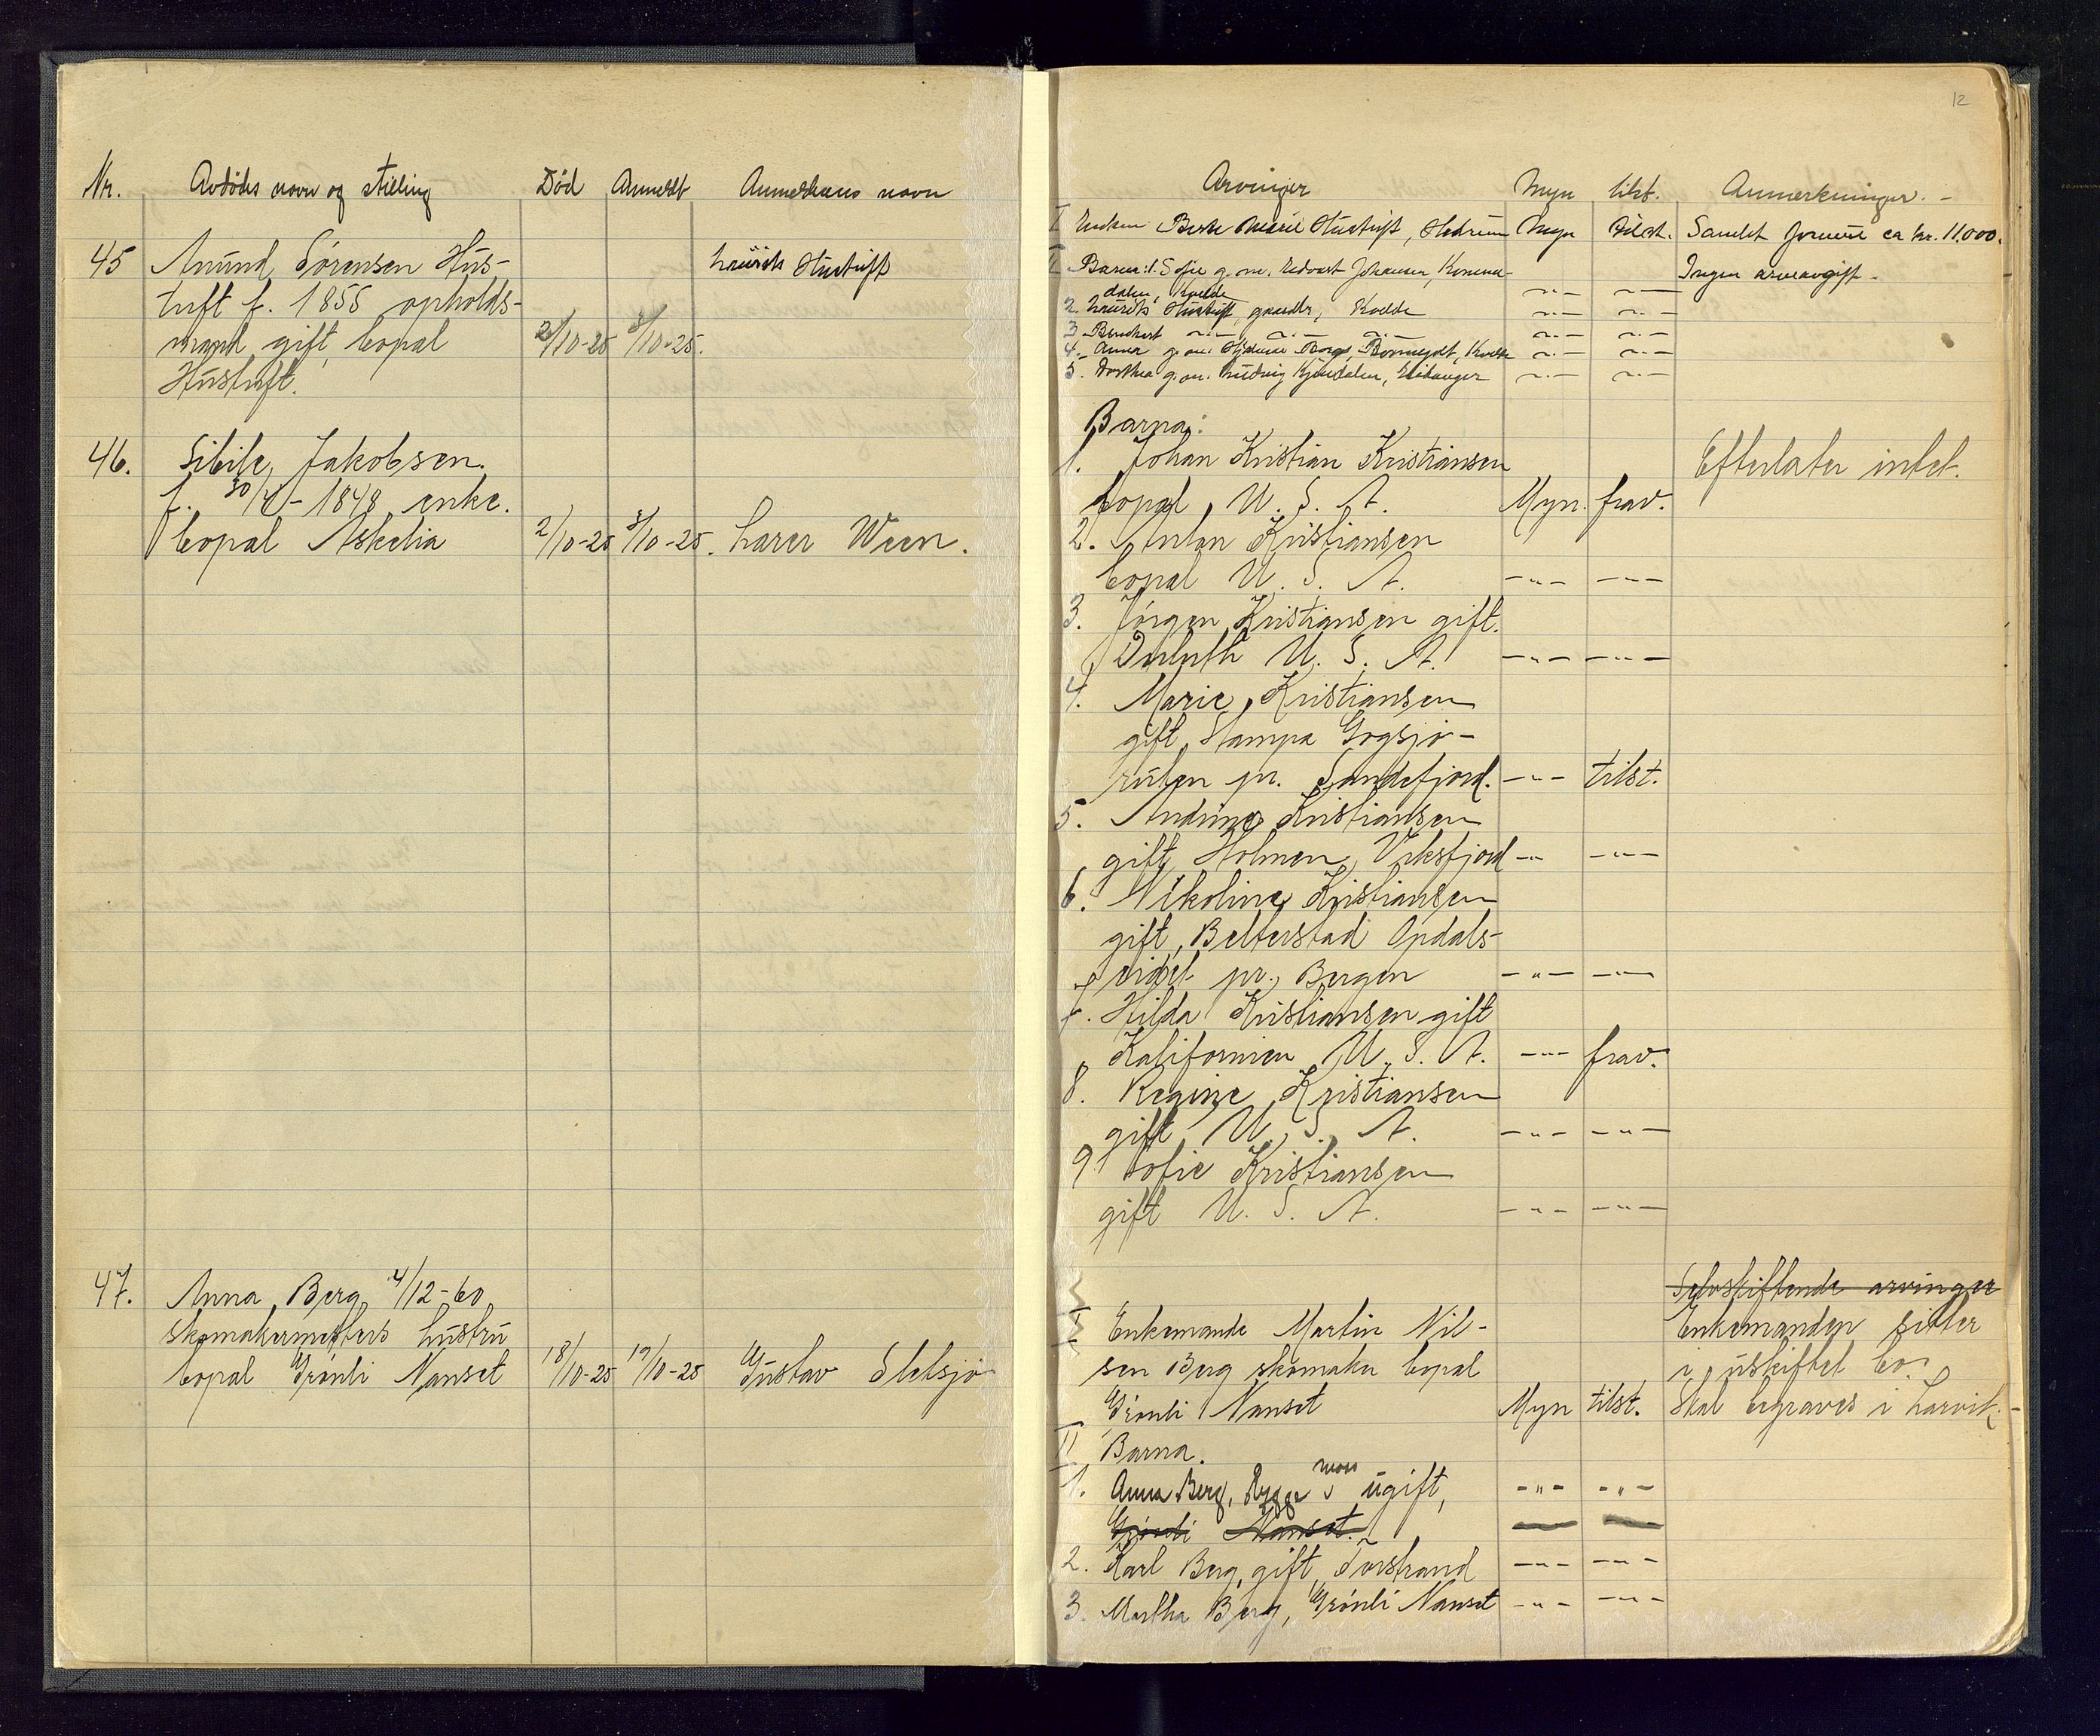 12
Nr. Avdødes navn og stilling Død Anmeldt Anmelderens navn
45 Anund Sørensen Hus- Laurits Hustuft
tuft f. 1855 opholds-
mand gift, bopal 2/10-25 8/10-25.
Hustuft.
46. Sibile Jakobsen.
f. 30/4-1848 enke.
bopal Askelia 2/10-25 8/10-25. Larer Ween.
47. Anna Berg 4/12-60
skomakermesters hustru
bopal Grønli Nanset 18/10-25 19/10-25 Gustav Sletsjø
Arvinger Myn tilst. Anmerkninger.-
I Enken Berte Marie Hustuft, Hedrum Myn tilst. Samlet formue ca kr. 11.000.
II Barna: 1. Sofie g.m. Edvart Johansen, Ingen arveavgift.
dalen, Kvelde -"- -"-
2. Laurits Hustuft, gaardbr, Kvelde -"- -"-
3. -"- -"- -"- -"- -"-
4. Anna g.m. Berge, Kvelde -"- -"-
5. Dorthea g.m. Ludvig Kjendalen, Eidanger -"- -"-
Barna:
1. Johan Kristian Kristiansen Efterlater intet.
bopal, U. S. A. Myn. frav.
2. Anton Kristiansen
bopal U. S. A. -"- -"-
3. Jørgen Kristiansen gift.
Duluth U. S. A. -"- -"-
4. Marie Kristiansen
gift, Stampa Gogsjø-
ruten pr. Sandefjord. -"- tilst.
5. Andrine Kristiansen
gift, Holmen, Viksfjord -"- -"-
6. Nikoline Kristiansen
gift, Belterstad Opdals-
eidet pr. Bergen -"- -"-
7. Hilda Kristiansen gift
Kalifornien U. S. A. -"- frav.
8. Regine Kristiansen
gift U. S. A. -"- -"-
9. Sofie Kristiansen
gift U. S. A. -"- -"-
Selvskiftende arvinger
I Enkemande Martin Nil- Enkemanden sitter
sen Berg skomaker bopal i uskiftet bo.
Grønli Nanset Myn tilst. Skal begraves i Larvik.-
II Barna.
1. Anna Berg, Rygge ugift, -"- -"-
Grønli Nanset.
2. Karl Berg, gift, Torstrand -"- -"-
3. Martha Berg, Grønli Nanset -"- -"-